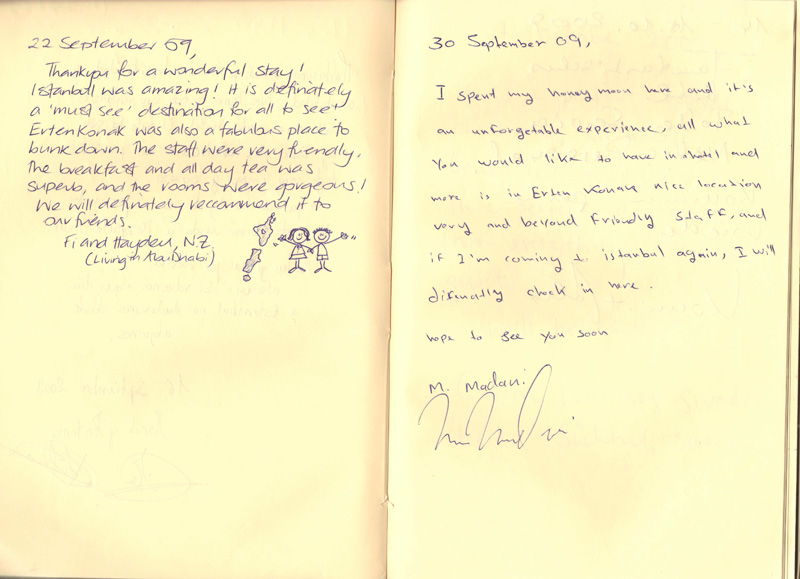 22 September 09,
Thankyou for a wonderful stay!
Istanbull was amazing! It is definately
a 'must see' destination for all to see!
Erten Konak was also a fabulous place to
bunk down. The staff were very friendly,
the breakfast and all day tea was
superb, and the rooms were gorgeous!
We will definately reccommend it to
our friends.
Fi and Hayden, N.Z.
(Living in Abu Dhabi)
30 September 09,
I spent my honey moon here and it's
an unforgetable experience, all what
you would like to have in hotel and
more is in Erten Konak nice location
very and beyond friendly staff, and
if I'm coming to istanbul again, I will
difenatly check in here.
hope to see you soon
M. Madani